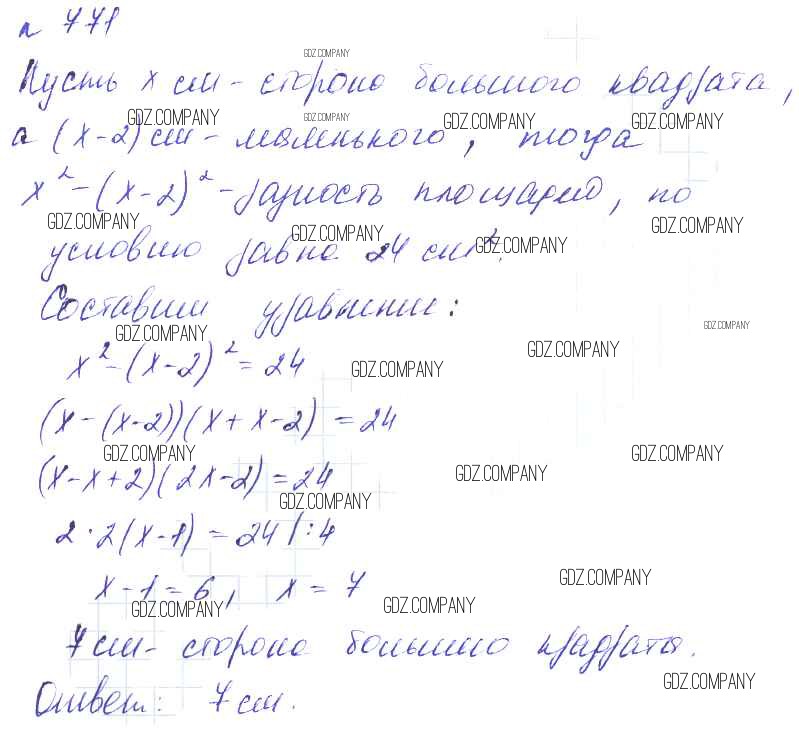 № 771
GDZ.COMPANY
Пусть x см - сторона большого квадрата,
GDZ.COMPANY GDZ.COMPANY GDZ.COMPANY GDZ.COMPANY
а (x-2) см - маленького, тогда
x² - (x-2)² - разность площадей, по
GDZ.COMPANY GDZ.COMPANY GDZ.COMPANY GDZ.COMPANY
условию равна 24 см².
Составим уравнение:
GDZ.COMPANY GDZ.COMPANY
x² - (x-2)² = 24
GDZ.COMPANY GDZ.COMPANY
(x - (x-2))(x + x - 2) = 24
GDZ.COMPANY GDZ.COMPANY
(x - x + 2)(2x - 2) = 24
GDZ.COMPANY GDZ.COMPANY
2 · 2(x - 1) = 24 | : 4
x - 1 = 6, x = 7
GDZ.COMPANY GDZ.COMPANY GDZ.COMPANY
7 см - сторона большего квадрата.
GDZ.COMPANY
Ответ: 7 см.